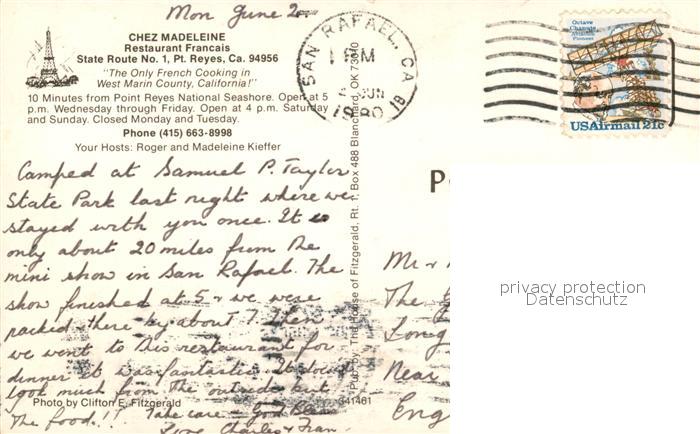 Mon June 2
CHEZ MADELEINE
Restaurant Francais
State Route No. 1, Pt. Reyes, Ca. 94956
"The Only French Cooking in
West Marin County, California!"
10 Minutes from Point Reyes National Seashore. Open at 5
p.m. Wednesday through Friday. Open at 4 p.m. Saturday
and Sunday. Closed Monday and Tuesday.
Phone (415) 663-8998
Your Hosts: Roger and Madeleine Kieffer
Camped at Samuel P. Taylor
State Park last night where we
stayed with you once. It is
only about 20 miles from the
mini show in San Rafael. The
show finished at 5 & we were
packed there by about 7. Then
we went to this restaurant for
dinner it was fantastic. It doesn't
look much from the outside but
Photo by Clifton E. Fitzgerald
The food!! Take care - God Bless
Love Charles & Fran
Pub. by: The House of Fitzgerald, Rt. 1, Box 488 Blanchard, OK 73010
341461
SAN RAFAEL, CA
PM
JUN
1980
Octave
Chanute
Aviation
Pioneer
USAirmail 21c
P
Mr &
The
Long
Near
Eng
privacy protection
Datenschutz